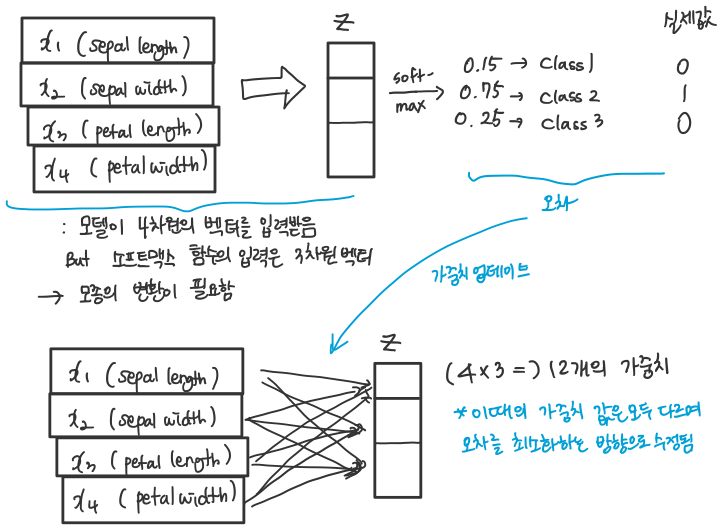 x1 (sepal length)
x2 (sepal width)
x3 (petal length)
x4 (petal width)
z
soft-
max
실제값
0.15 → class 1 0
0.75 → class 2 1
0.25 → class 3 0
오차
: 모델이 4차원의 벡터를 입력받음
But 소프트맥스 함수의 입력은 3차원 벡터
→ 모종의 변환이 필요함
가중치 업데이트
x1 (sepal length)
x2 (sepal width)
x3 (petal length)
x4 (petal width)
z
(4 x 3 =) 12개의 가중치
* 이때의 가중치 값은 모두 다르며
오차를 최소화하는 방향으로 수정됨